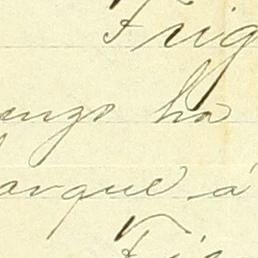 Frig
enzo ha
arque á